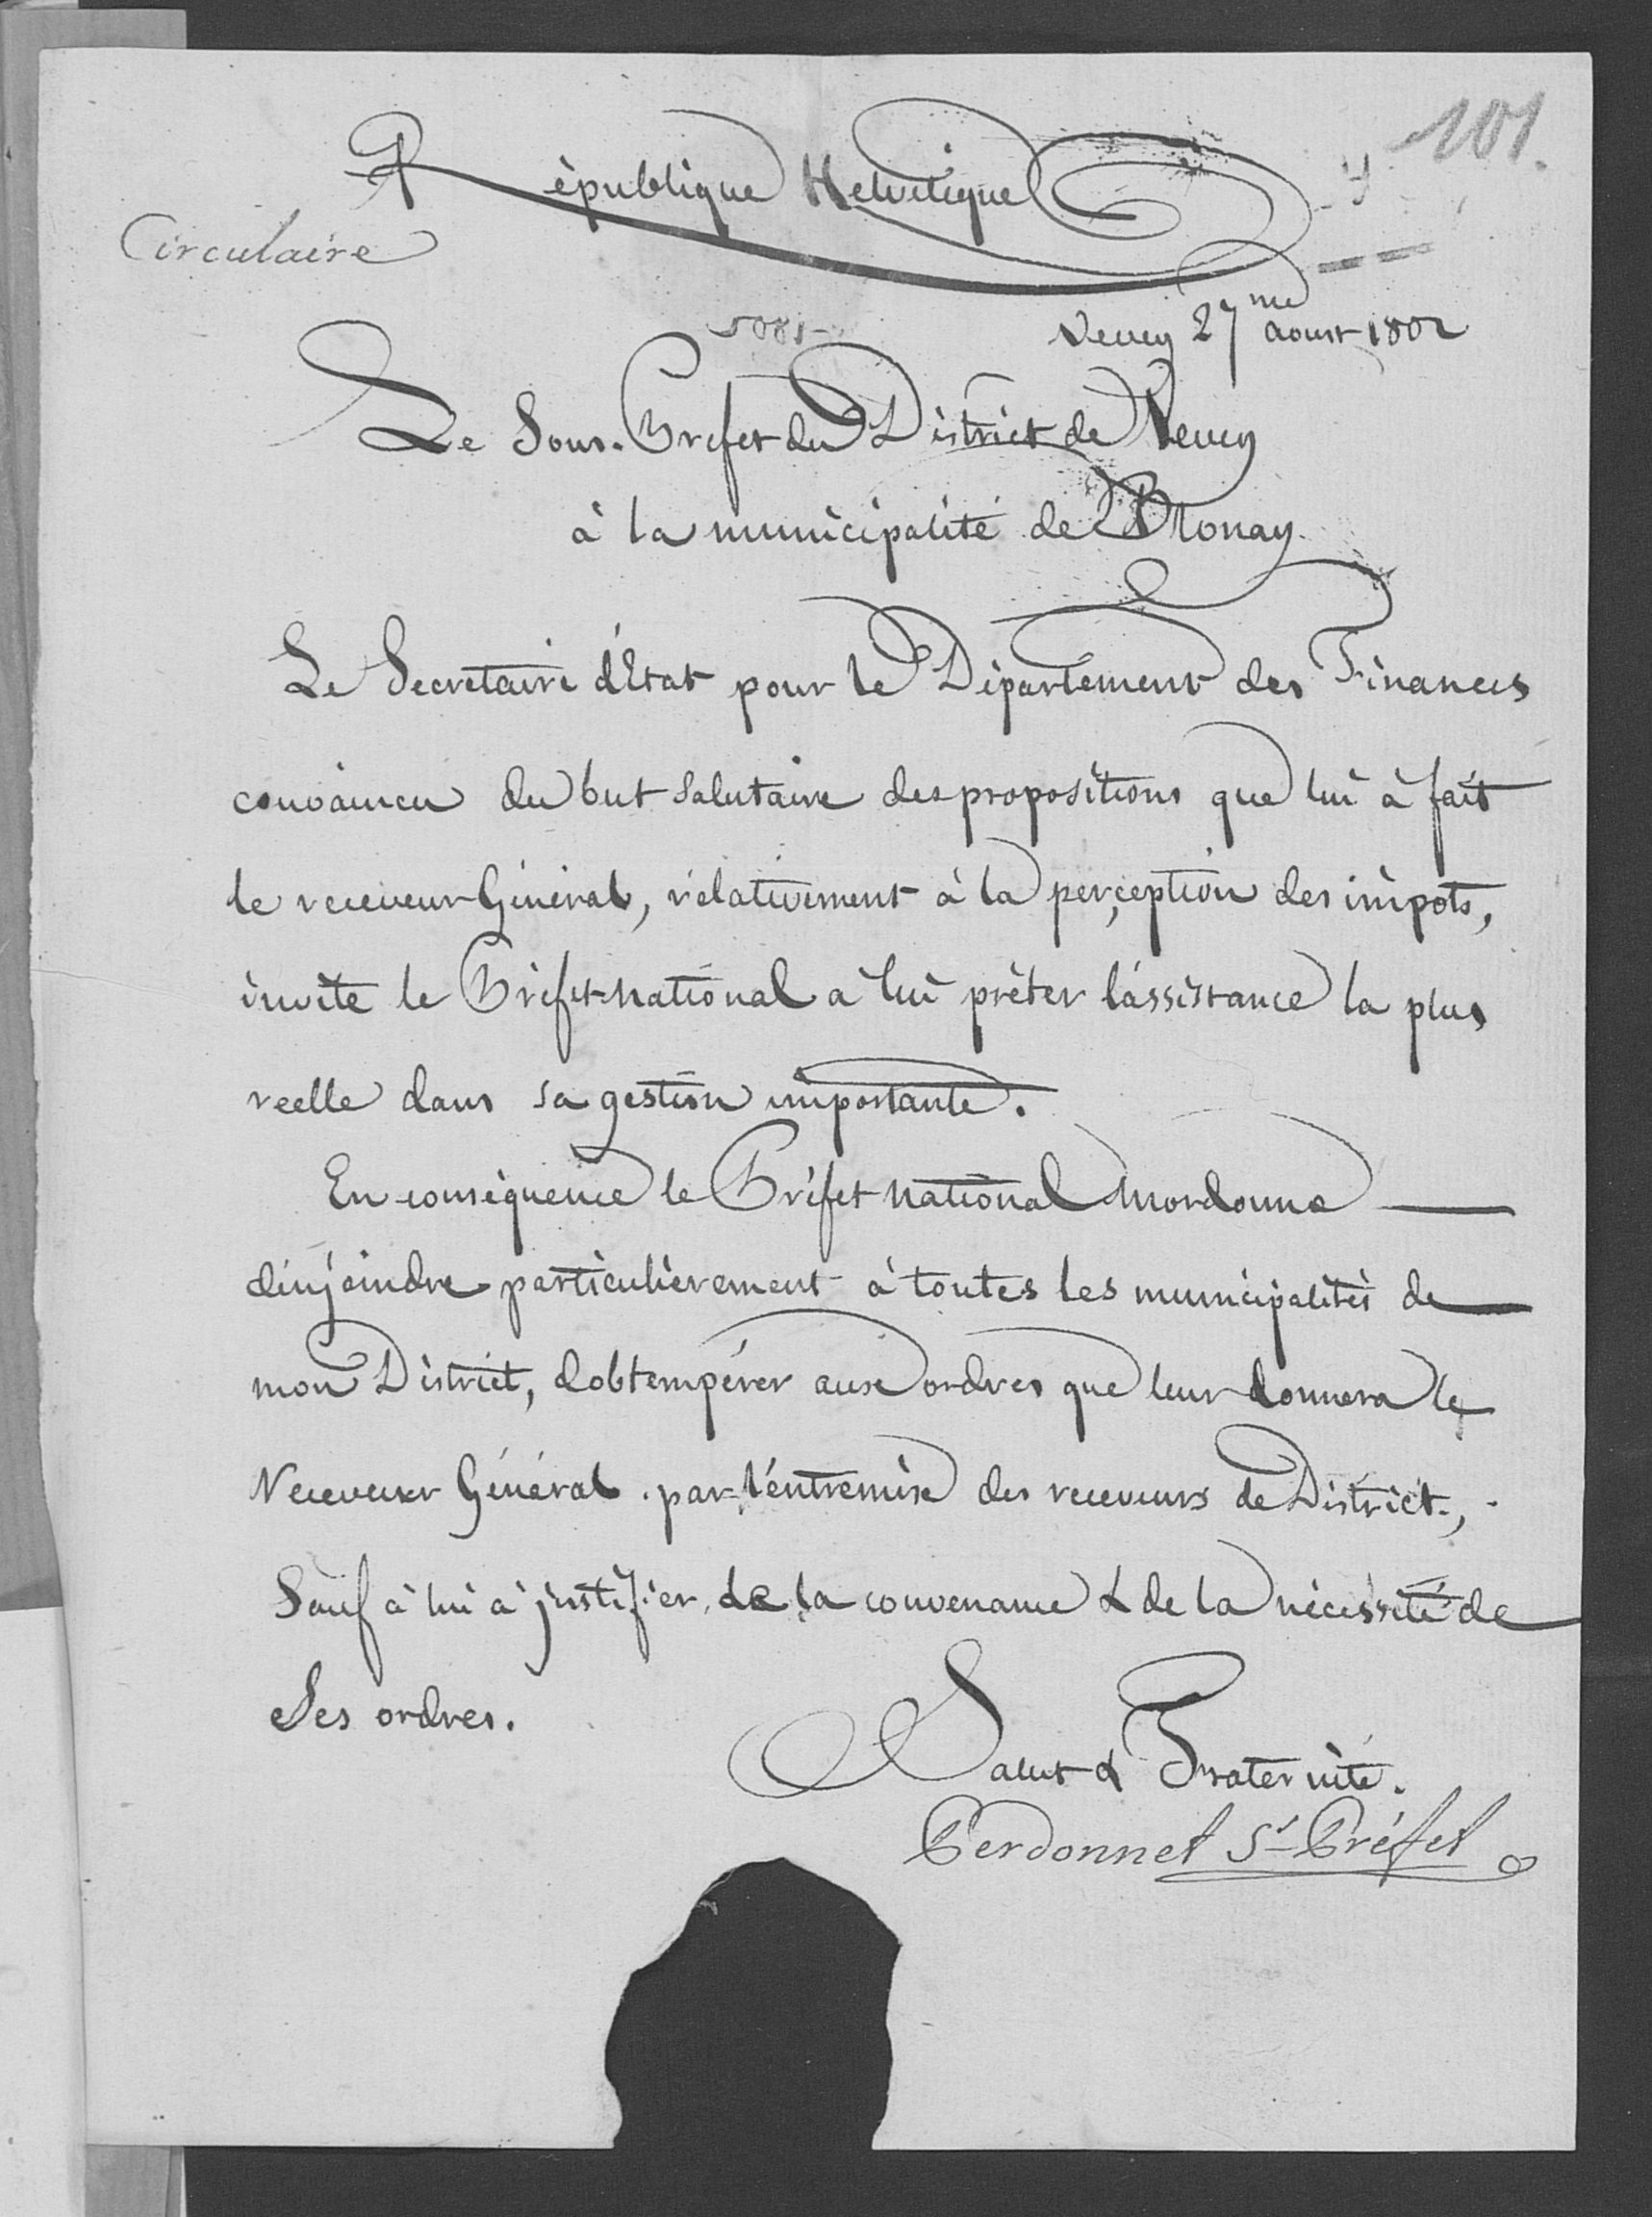 101.
République Helvétique
Circulaire
5081
Vevey 27me Aoust 1802
Le Sous-Préfet du District de Vevey
à la municipalité de Blonay.
Le Secretaire d'Etat pour le Département des Finances
convaincu du but salutaire des propositions que lui à fait
le receveur Général, rélativement à la perception des impots,
invite le Préfet national a lui prèter l'assistance la plus
reelle dans sa gestion importante.
En conséquence le Préfet national m'ordonne
d'injoindre particulièrement à toutes les municipalités de
mon District, d'obtempérer aux ordres que leur donnera le
Receveur Général par l'entremise des receveurs de District,
Sauf à lui à justifier de la convenance & de la nécessité de
Ses ordres.
Salut & Fraternité.
Perdonnet Ss-Préfet